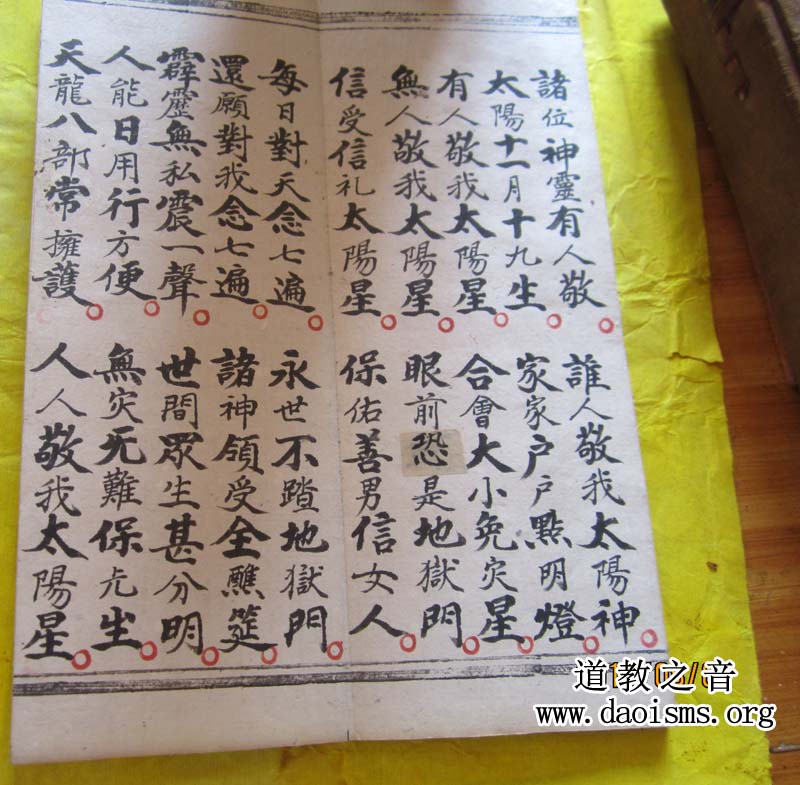 諸位神靈有人敬
誰人敬我太陽神
太陽十一月十九生
家家户户點明燈
有人敬我太陽星
合會大小免灾星
無人敬我太陽星
眼前恐是地獄門
信受信礼太陽星
保佑善男信女人
每日對天念七遍
永世不踏地獄門
還願對我念七遍
諸神領受全醮筵
霹靂無私震一聲
世間眾生甚分明
人能日用行方便
無灾无難保生
天龍八部常擁護
人人敬我太陽星
道教之音
www.daoisms.org